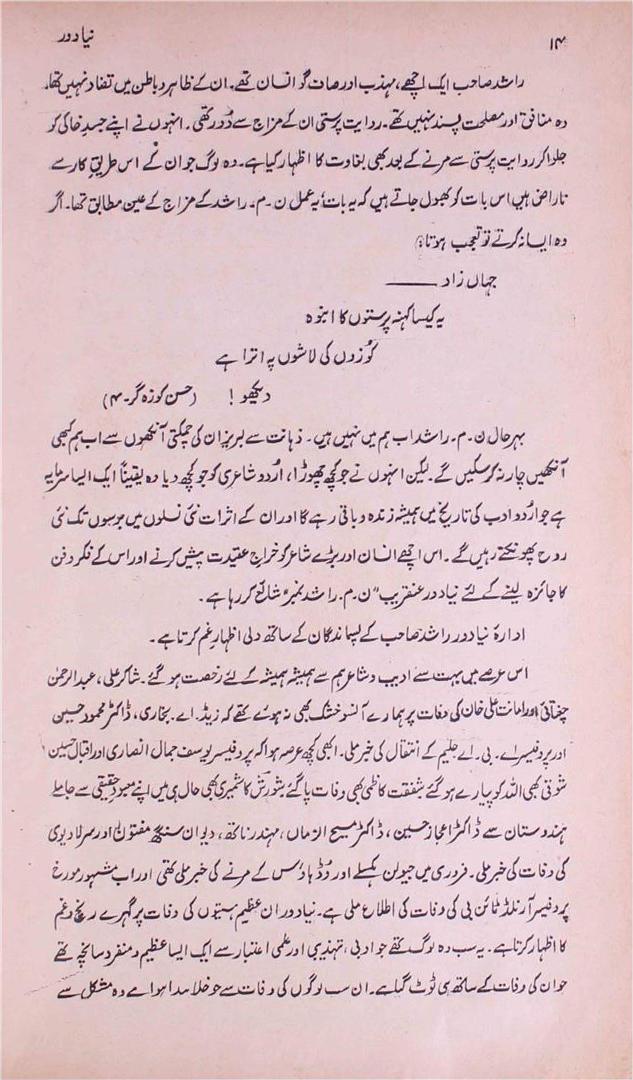 ۱۴ نیا دور
راشد صاحب ایک اچھے، مہذب اور صاف گو انسان تھے۔ ان کے ظاہر و باطن میں تضاد نہیں تھا۔
وہ منافق اور مصلحت پسند نہیں تھے۔ روایت پرستی ان کے مزاج سے دُور تھی۔ انہوں نے اپنے جسدِ خاکی کو
جلوا کر روایت پرستی سے مرنے کے بعد بھی بغاوت کا اظہار کیا ہے۔ وہ لوگ جو ان کے اس طریقِ کار سے
ناراض ہیں اس بات کو بھول جاتے ہیں کہ یہ بات، یہ عمل ن۔م۔ راشد کے مزاج کے عین مطابق تھا۔ اگر
وہ ایسا نہ کرتے تو تعجب ہوتا۔
جہاں زاد ———
یہ کیسا کہنہ پرستوں کا انبوہ
کُوزوں کی لاشوں پہ اترا ہے
دیکھو! (حسن کوزہ گر۔۴)
بہر حال ن۔م۔ راشد اب ہم میں نہیں ہیں۔ ذہانت سے لبریز ان کی چمکتی آنکھوں سے اب ہم کبھی
آنکھیں چار نہ کر سکیں گے۔ لیکن انہوں نے جو کچھ چھوڑا، اُردو شاعری کو جو کچھ دیا وہ یقیناً ایک ایسا سرمایہ
ہے جو اُردو ادب کی تاریخ میں ہمیشہ زندہ و باقی رہے گا اور ان کے اثرات نئی نسلوں میں برسوں تک نئی
روح پھونکتے رہیں گے۔ اس اچھے انسان اور بڑے شاعر کو خراجِ عقیدت پیش کرنے اور اس کے فکر و فن
کا جائزہ لینے کے لئے نیا دور عنقریب "ن۔م۔ راشد نمبر" شائع کر رہا ہے۔
ادارۂ نیا دور راشد صاحب کے پسماندگان کے ساتھ دلی اظہارِ غم کرتا ہے۔
اس عرصے میں بہت سے ادیب و شاعر ہم سے ہمیشہ ہمیشہ کے لئے رخصت ہو گئے۔ شاکر علی، عبدالرحمٰن
چغتائی اور امانت علی خان کی وفات پر ہمارے آنسو خشک بھی نہ ہوئے تھے کہ زیڈ۔ اے۔ بخاری، ڈاکٹر محمود حسین
اور پروفیسر اے۔ بی۔ اے حلیم کے انتقال کی خبر ملی۔ ابھی کچھ عرصہ ہوا کہ پروفیسر یوسف جمال انصاری اور اقبال حسین
شوقی بھی اللہ کو پیارے ہو گئے۔ شفقت کاظمی بھی وفات پا گئے۔ شورش کاشمیری بھی حال ہی میں اپنے معبودِ حقیقی سے جا ملے
ہندوستان سے ڈاکٹر اعجاز حسین، ڈاکٹر مسیح الزماں، مہندر ناتھ، دیوان سنگھ مفتوں اور سرلا دیوی
کی وفات کی خبر ملی۔ فروری میں جیولن ہکسلے اور وُڈ ہاؤس کے مرنے کی خبر ملی تھی اور اب مشہور مورخ
پروفیسر آرنلڈ ٹائن بی کی وفات کی اطلاع ملی ہے۔ نیا دور ان عظیم ہستیوں کی وفات پر گہرے رنج و غم
کا اظہار کرتا ہے۔ یہ سب وہ لوگ تھے جو ادبی، تہذیبی اور علمی اعتبار سے ایک ایسا عظیم و منفرد سانچہ تھے
جو ان کی وفات کے ساتھ ہی ٹوٹ گیا ہے۔ ان سب لوگوں کی وفات سے جو خلا پیدا ہوا ہے وہ مشکل سے